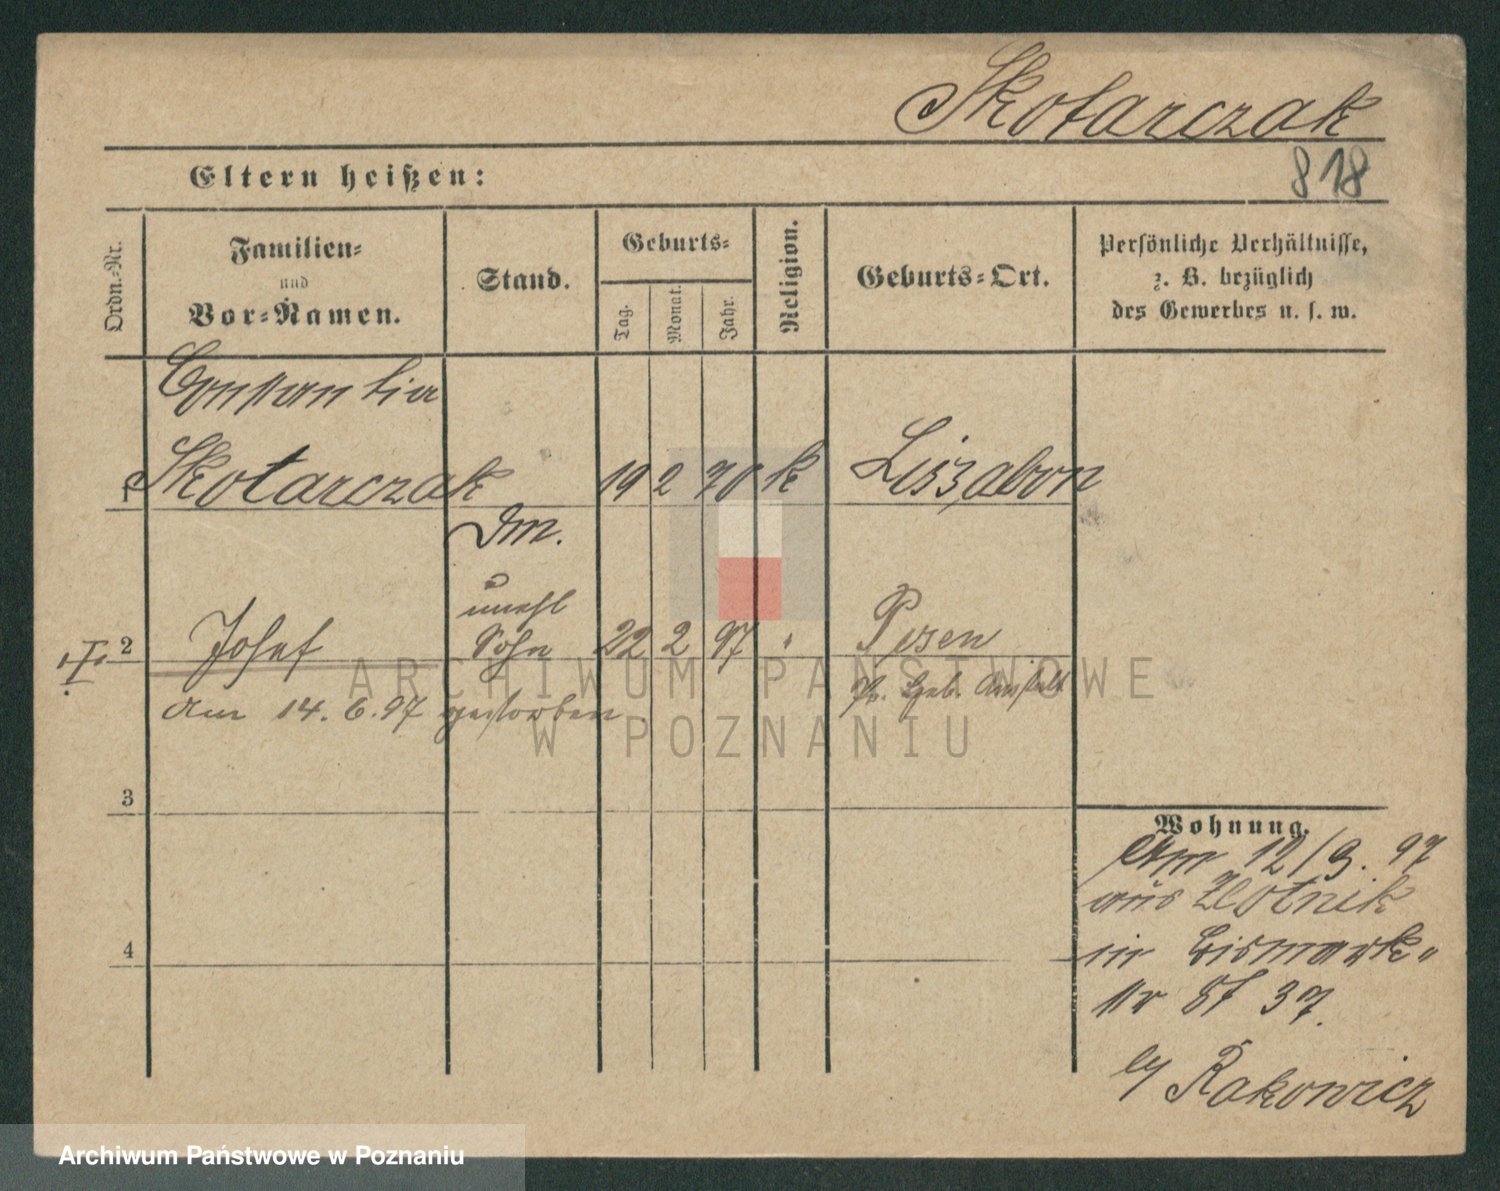 Skotarczak
Eltern heißen:
818
Ordn.-Nr.
Familien-
und
Vor-Namen.
Stand.
Geburts-
Tag.
Monat.
Jahr.
Religion.
Geburts-Ort.
Persönliche Verhältnisse,
z. B. bezüglich
des Gewerbes u. s. w.
Constantia
1 Skotarczak 19 2 70 k Liszabon
Dm.
unehl
2 Josef Sohn 22 2 97 " Posen
Pr. Geb. Anstalt
am 14. 6. 97 gestorben
ARCHIWUM PAŃSTWOWE
W POZNANIU
3
Wohnung.
Am 12/3. 97
aus Zlotnik
in Bismark-
Str 37.
4
by Rakowicz
Archiwum Państwowe w Poznaniu